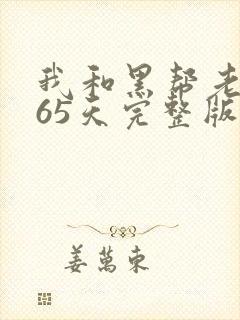 我和黑帮老
65天完整版
姜萬東